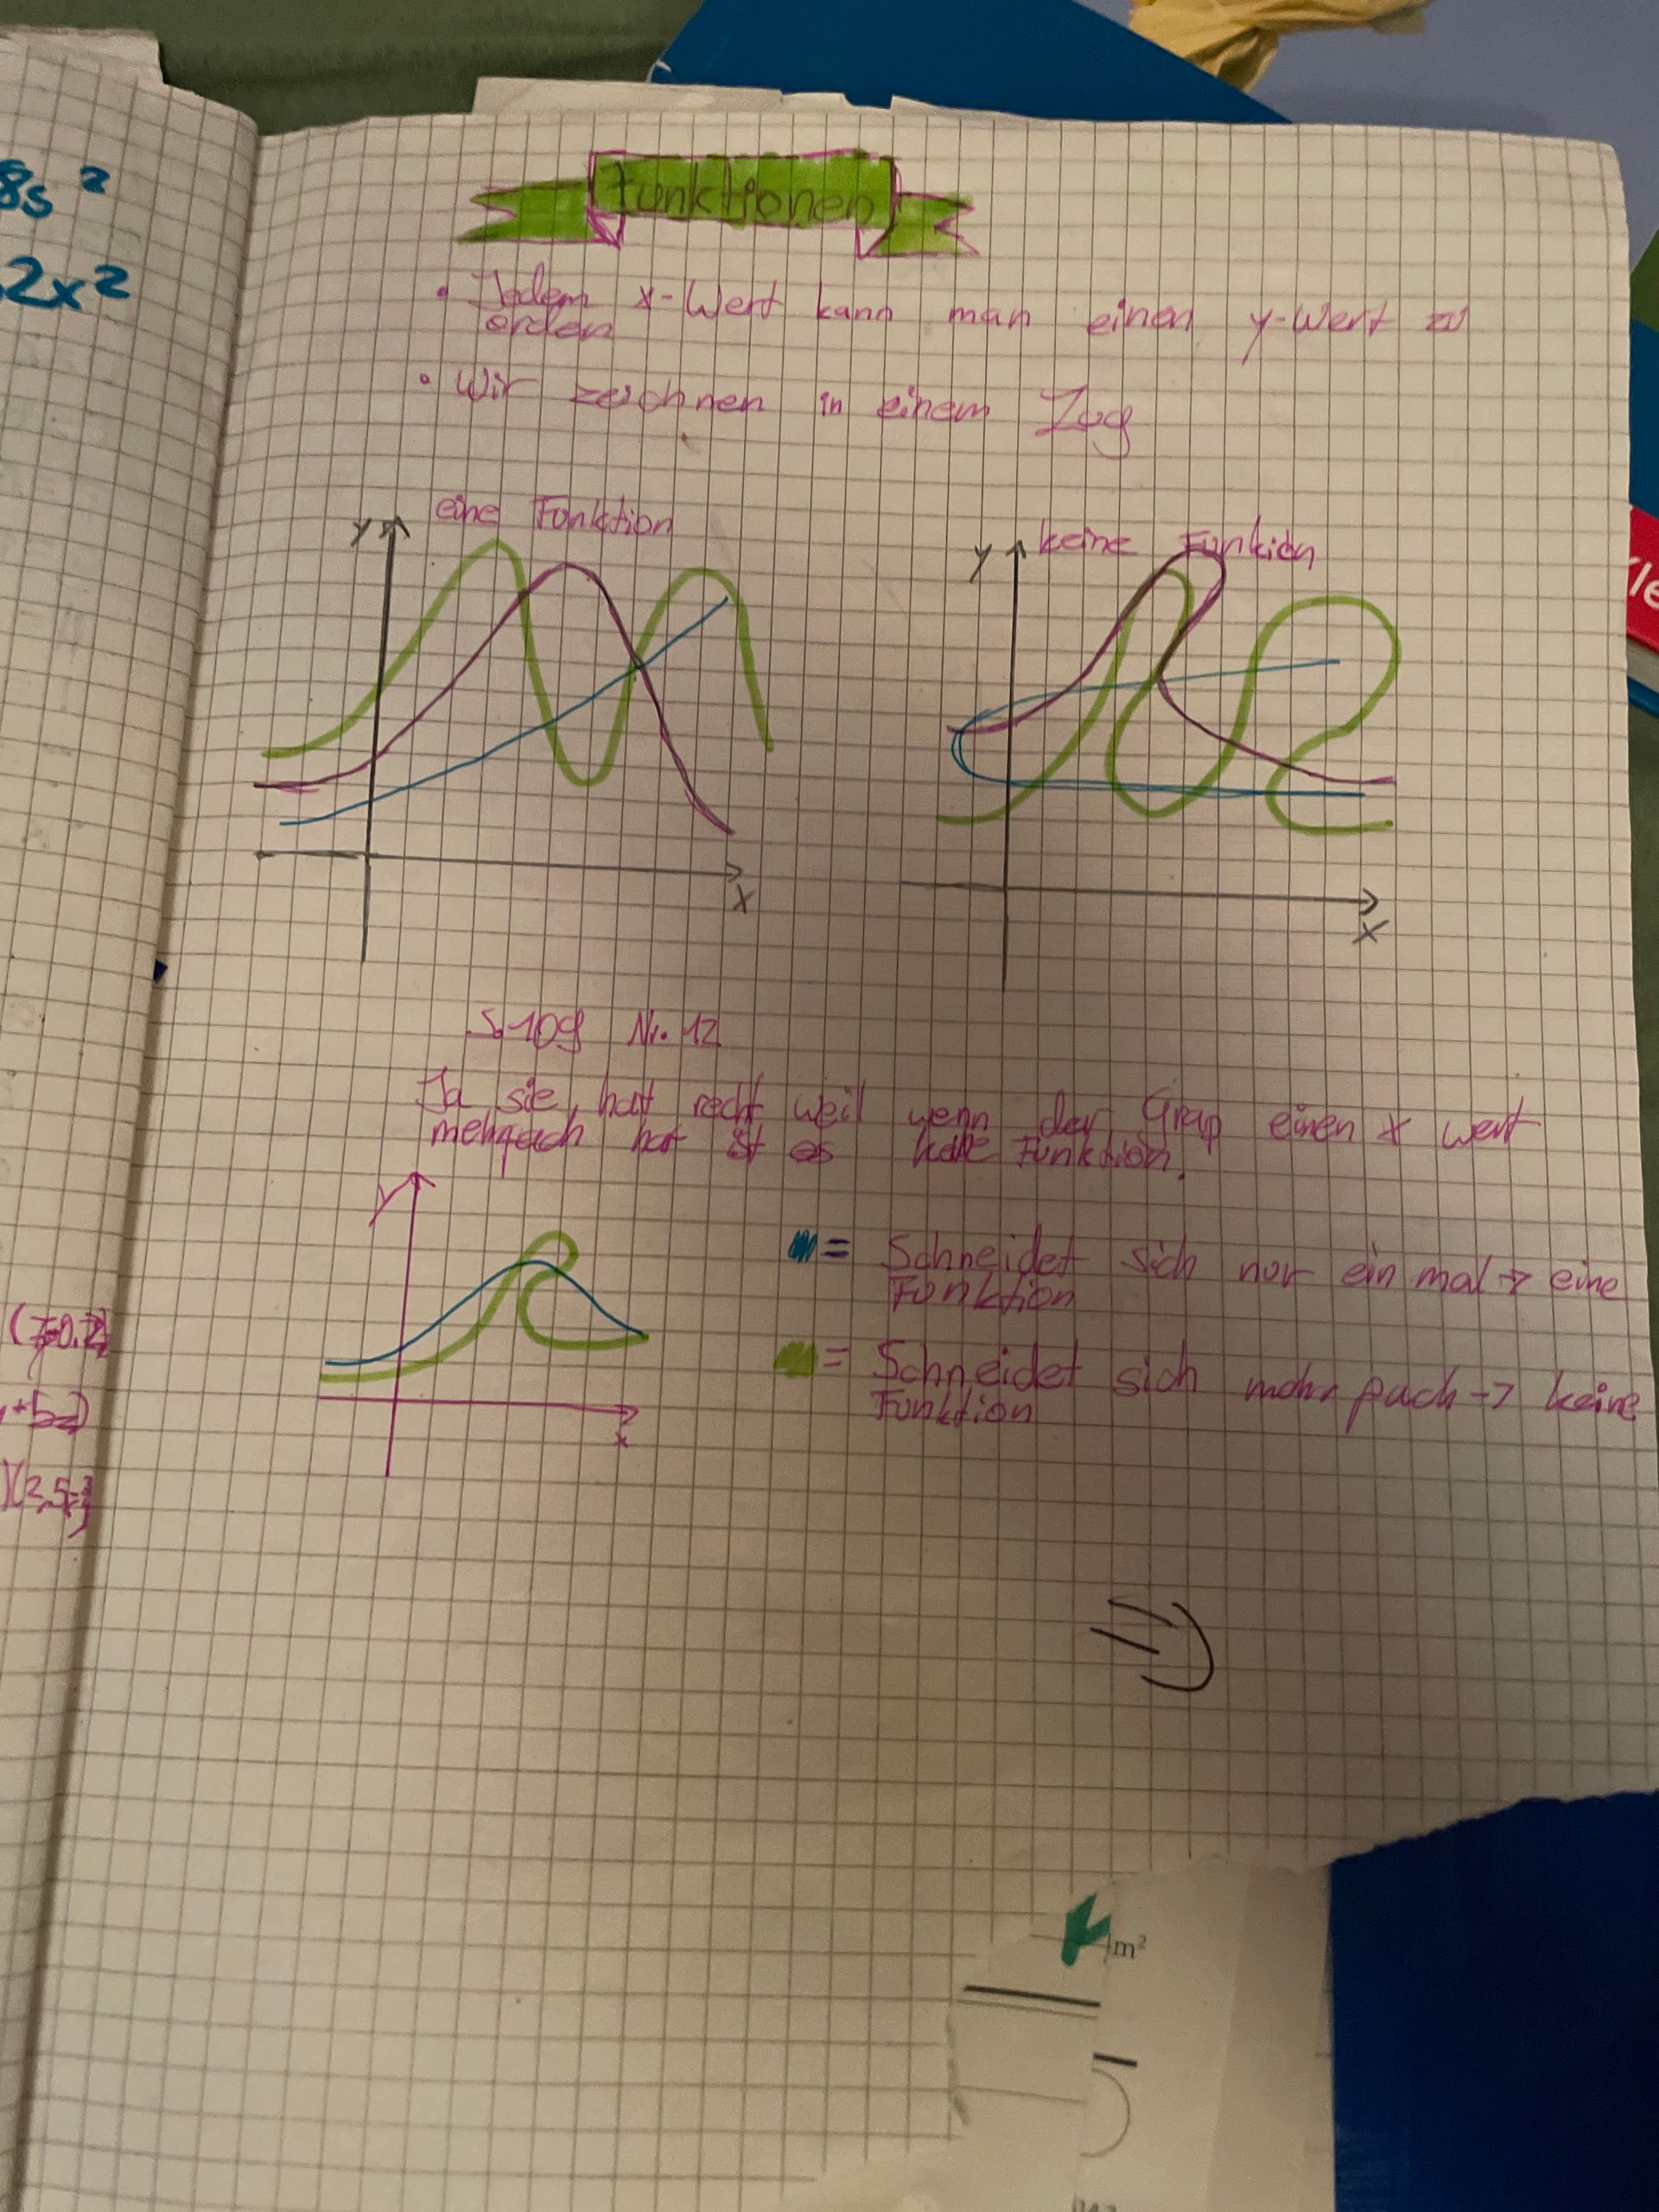 8s²
2x²
Funktionen
• Jedem x-Wert kann man einen y-Wert zu
orden
• Wir zeichnen in einem Zug
eine Funktion
y
x
keine Funkion
y
x
S.109 Nr. 12
Ja sie hat recht weil wenn der Grap einen x wert
mehrfach hat ist es keine Funktion.
y
x
= Schneidet sich nur ein mal → eine
Funktion
= Schneidet sich mehr fach → keine
Funktion
m²